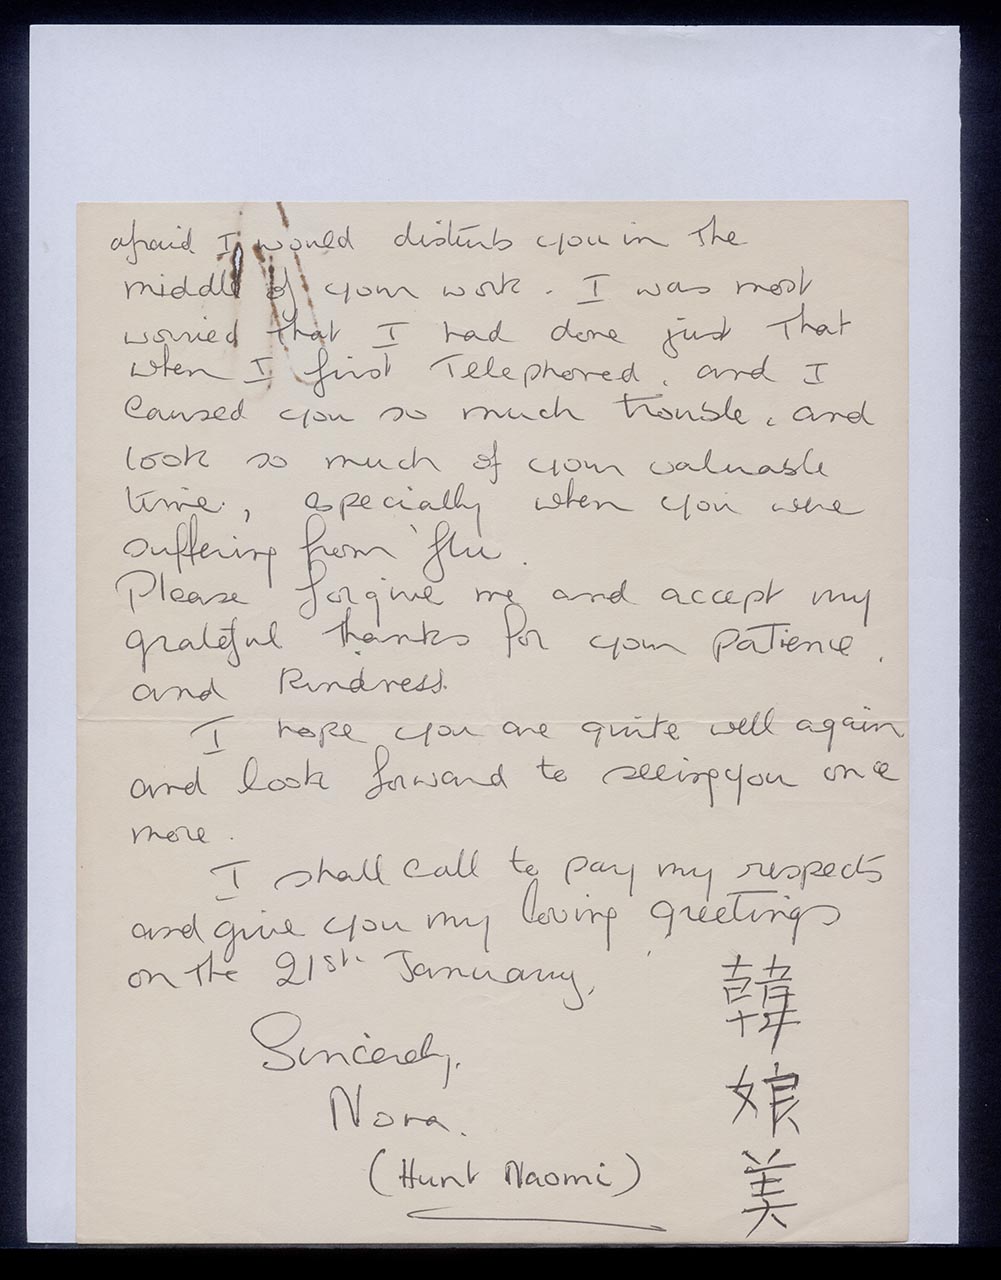 afraid I would disturb you in the
middle of your work. I was most
worried that I had done just that
when I first Telephoned, and I
caused you so much trouble, and
took so much of your valuable
time, especially when you were
suffering from 'flu.
Please forgive me and accept my
grateful thanks for your patience
and kindness.
I hope you are quite well again
and look forward to seeing you once
more.
I shall call to pay my respects
and give you my loving greetings
on the 21st January.
Sincerely,
Nora.
(Hunt Naomi)
韓
娘
美